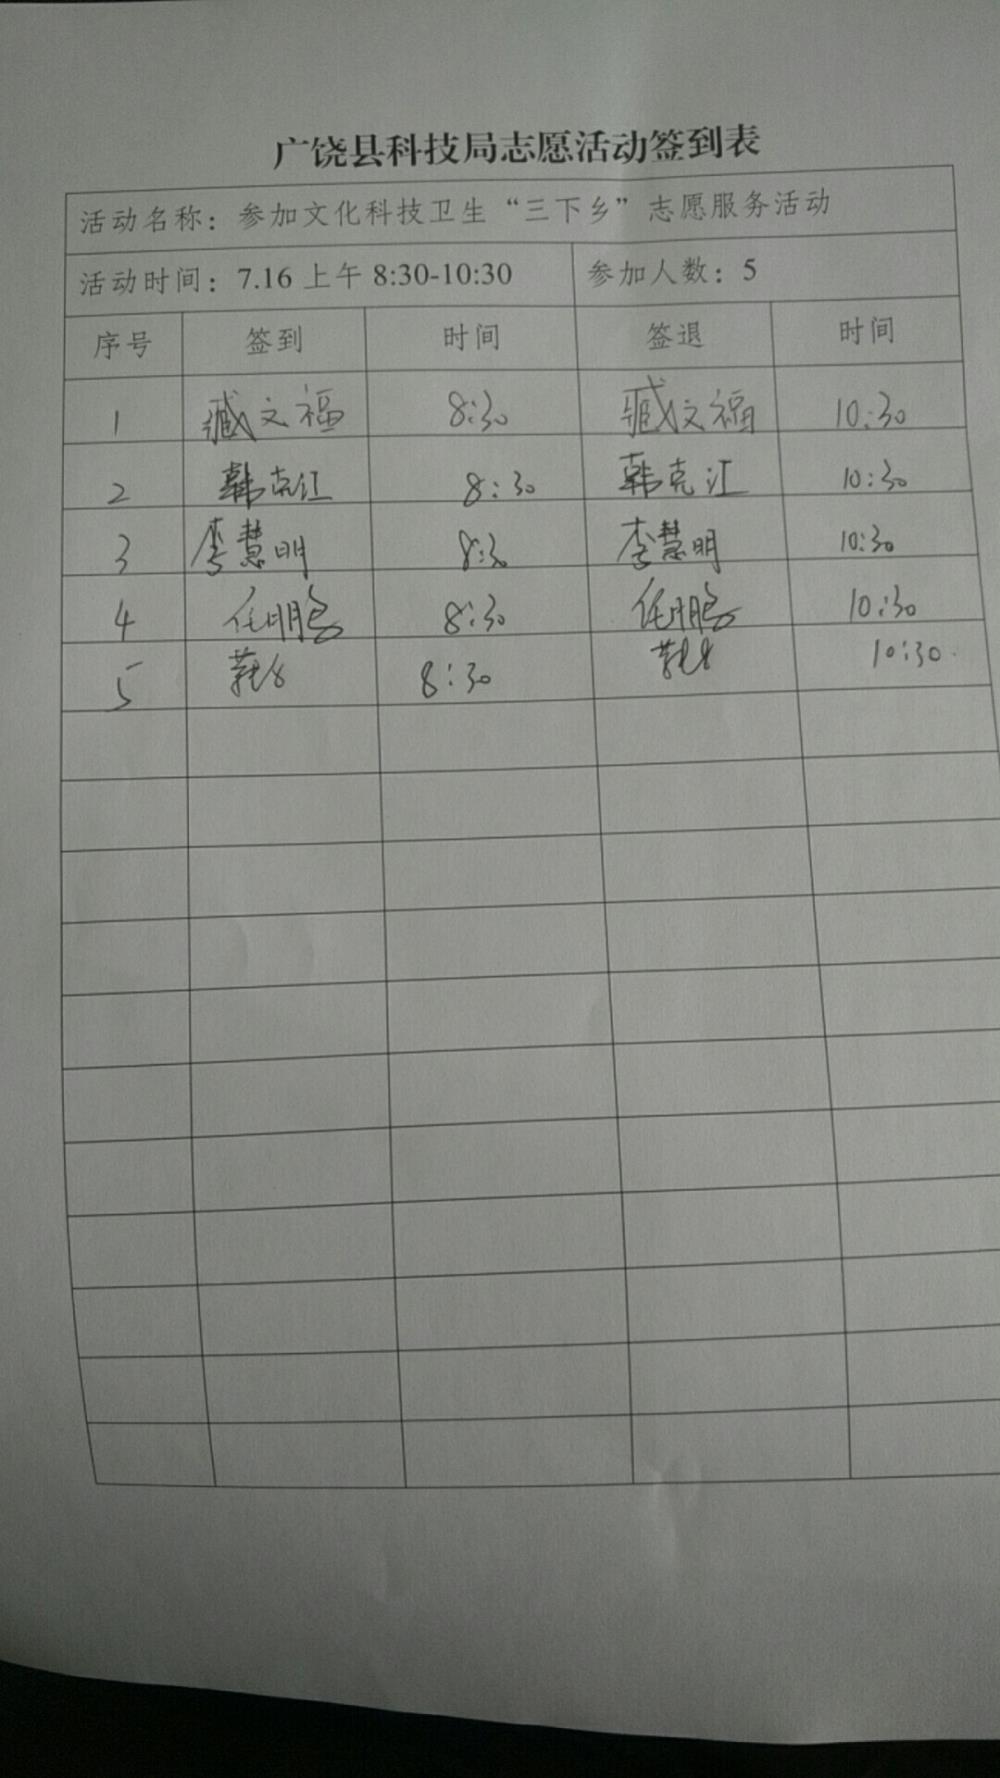 广饶县科技局志愿活动签到表
活动名称：参加文化科技卫生“三下乡”志愿服务活动
活动时间：7.16 上午 8:30-10:30 参加人数：5
序号 签到 时间 签退 时间
1 臧文福 8:30 臧文福 10:30
2 韩克江 8:30 韩克江 10:30
3 李慧明 8:30 李慧明 10:30
4 任鹏 8:30 任鹏 10:30
5 8:30 10:30